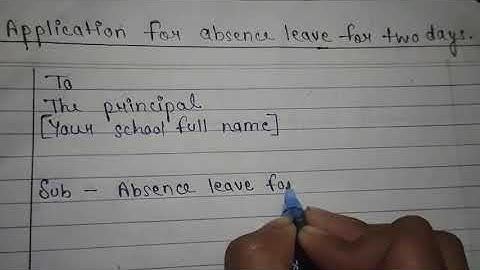 Application for absence leave for two days.
To
The principal
[Your school full name]
Sub - Absence leave for